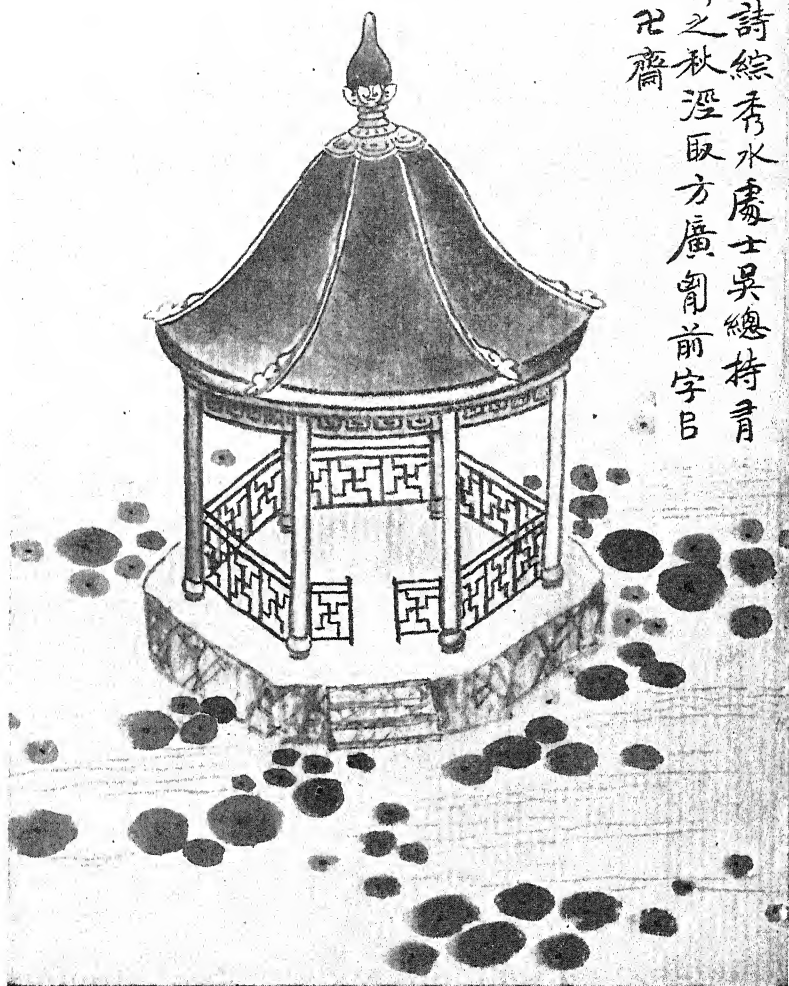 詩綜秀水處士吳總持
之秋涇取方廣胷前字㠯
卍齋